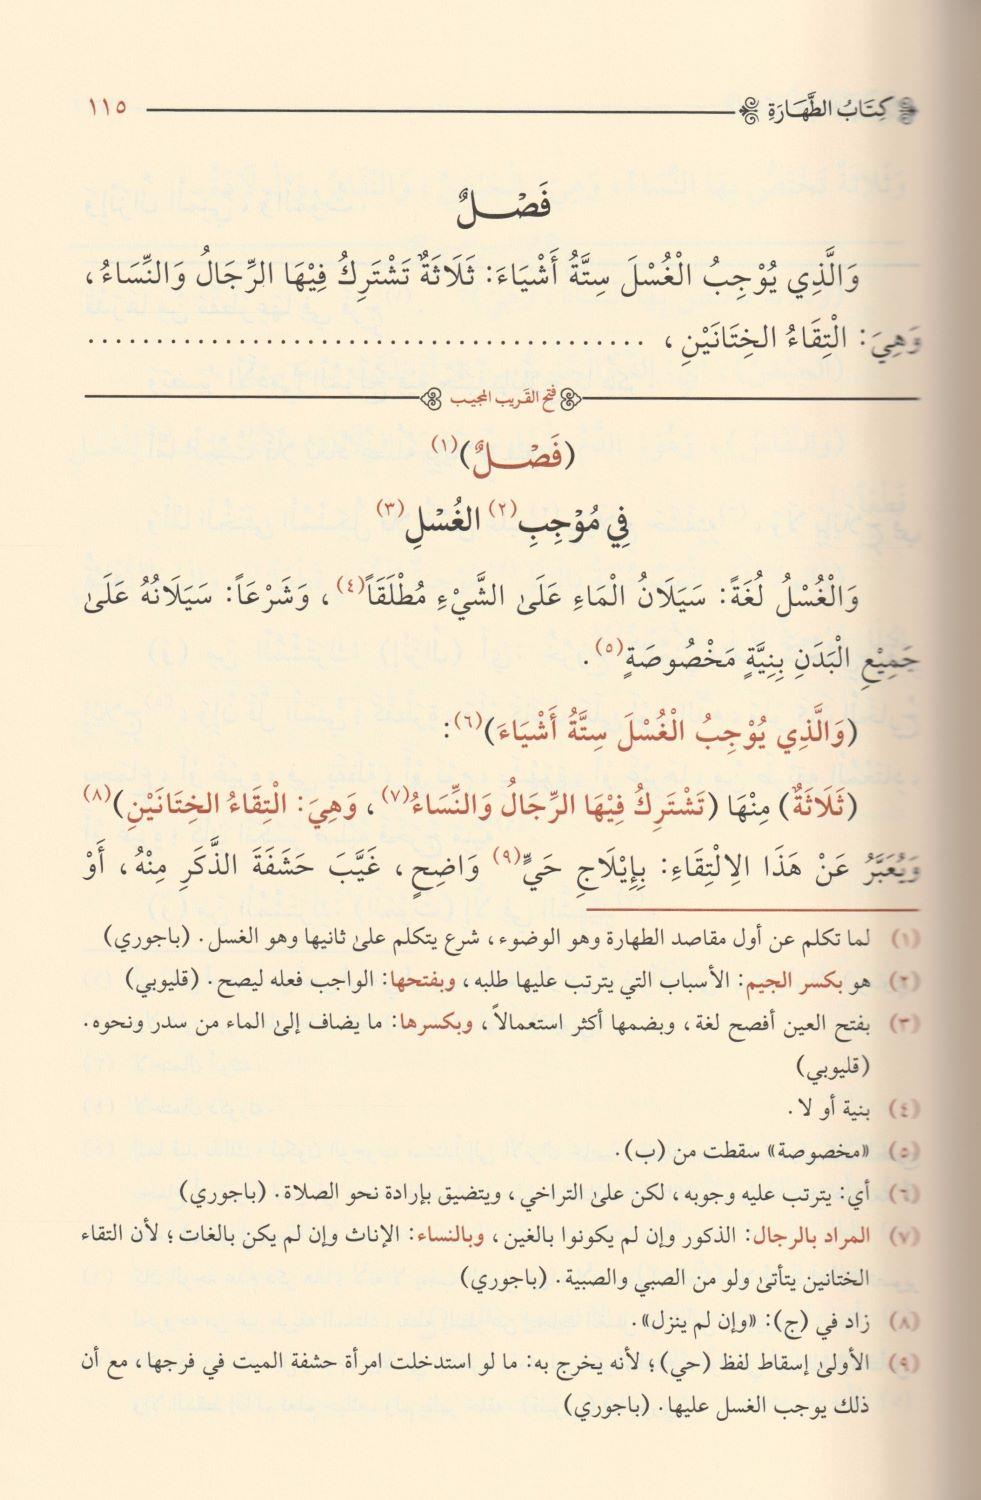 كِتَابُ الطَّهَارَةِ ١١٥
فَصْلٌ
وَالَّذِي يُوْجِبُ الْغُسْلَ سِتَّةُ أَشْيَاءَ: ثَلَاثَةٌ تَشْتَرِكُ فِيْهَا الرِّجَالُ وَالنِّسَاءُ،
وَهِيَ: الْتِقَاءُ الخِتَانَيْنِ، .........................................
فتح القريب المجيب
(فَصْلٌ)(١)
فِي مُوْجِبِ(٢) الغُسْلِ(٣)
وَالْغُسْلُ لُغَةً: سَيَلَانُ الْمَاءِ عَلَى الشَّيْءِ مُطْلَقَاً(٤)، وَشَرْعَاً: سَيَلَانُهُ عَلَىٰ
جَمِيْعِ الْبَدَنِ بِنِيَّةٍ مَخْصُوصَةٍ(٥).
(وَالَّذِي يُوْجِبُ الْغُسْلَ سِتَّةُ أَشْيَاءَ)(٦):
(ثَلَاثَةٌ) مِنْهَا (تَشْتَرِكُ فِيْهَا الرِّجَالُ وَالنِّسَاءُ(٧)، وَهِيَ: الْتِقَاءُ الخِتَانَيْنِ)(٨)
وَيُعَبَّرُ عَنْ هَذَا الِالْتِقَاءِ: بِإِيْلَاجِ حَيٍّ(٩) وَاضِحٍ، غَيَّبَ حَشَفَةَ الذَّكَرِ مِنْهُ، أَوْ
(١) لما تكلم عن أول مقاصد الطهارة وهو الوضوء، شرع يتكلم علىٰ ثانيها وهو الغسل. (باجوري)
(٢) هو بكسر الجيم: الأسباب التي يترتب عليها طلبه، وبفتحها: الواجب فعله ليصح. (قليوبي)
(٣) بفتح العين أفصح لغة، وبضمها أكثر استعمالاً، وبكسرها: ما يضاف إلىٰ الماء من سدر ونحوه.
(قليوبي)
(٤) بنية أو لا.
(٥) «مخصوصة» سقطت من (ب).
(٦) أي: يترتب عليه وجوبه، لكن علىٰ التراخي، ويتضيق بإرادة نحو الصلاة. (باجوري)
(٧) المراد بالرجال: الذكور وإن لم يكونوا بالغين، وبالنساء: الإناث وإن لم يكن بالغات؛ لأن التقاء
الختانين يتأتىٰ ولو من الصبي والصبية. (باجوري)
(٨) زاد في (ج): «وإن لم ينزل».
(٩) الأولىٰ إسقاط لفظ (حي)؛ لأنه يخرج به: ما لو استدخلت امرأة حشفة الميت في فرجها، مع أن
ذلك يوجب الغسل عليها. (باجوري)